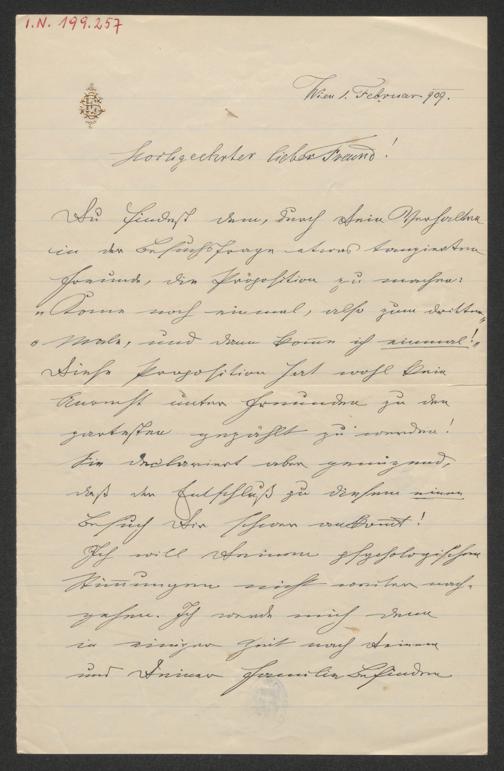 I.N. 199.257
Wien 1. Februar 909.
Hochgeehrter lieber Freund!
Du findest dem, durch Dein Verhalten
in der Besuchsfrage etwas tangierten
Freunde, die Proposition zu machen:
"Kome noch einmal, also zum dritten
Male, und dann kome ich einmal!"
Diese Proposition hat wohl kein
Anrecht unter Freunden zu den
zartesten gezählt zu werden!
Sie declariert aber genügend,
daß der Entschluß zu diesem einen
Besuch Dir schwer ankomt!
Ich will Deinen psychologischen
Stimungen nicht weiter nach-
gehen. Ich werde mich denn
in einiger Zeit nach Deinem
und Deiner Familie Befinden